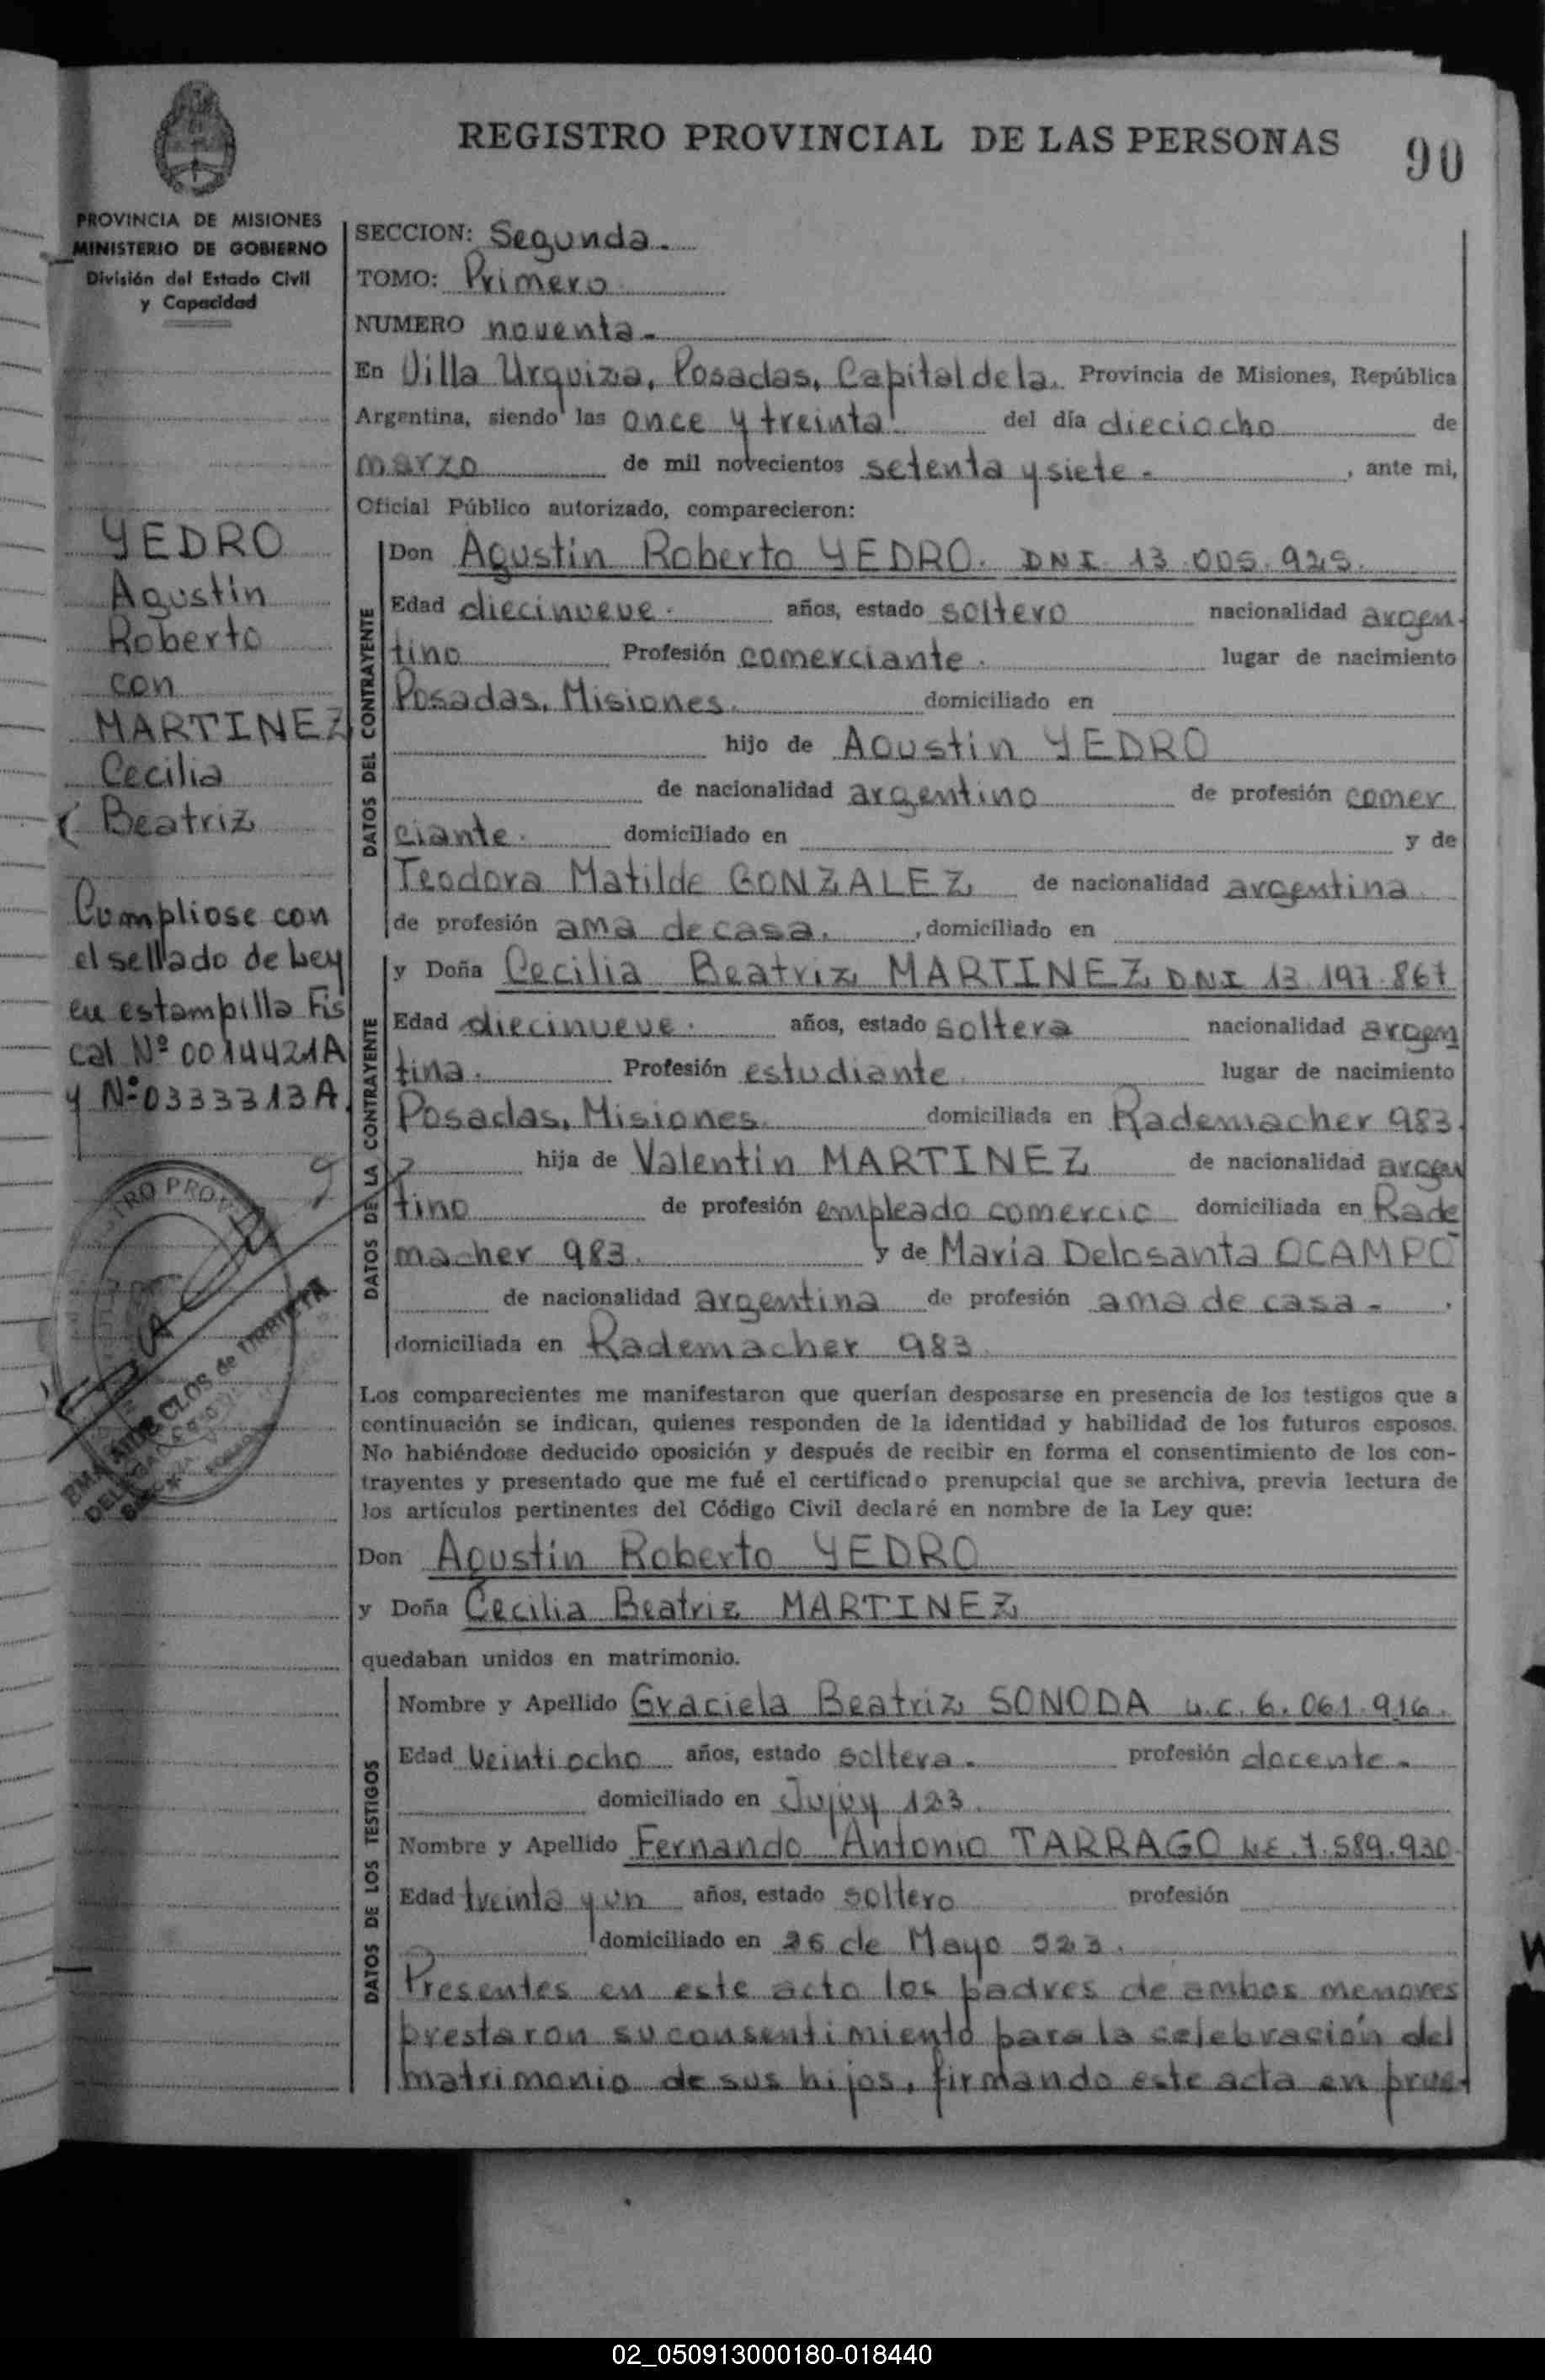 REGISTRO PROVINCIAL DE LAS PERSONAS
90
PROVINCIA DE MISIONES
MINISTERIO DE GOBIERNO
División del Estado Civil
y Capacidad
SECCION: Segunda.
TOMO: Primero
NUMERO noventa.
En Villa Urquiza, Posadas, Capital de la. Provincia de Misiones, República
Argentina, siendo las once y treinta del día dieciocho de
marzo de mil novecientos setenta y siete. , ante mi,
Oficial Público autorizado, comparecieron:
YEDRO
Agustin
Roberto
con
MARTINEZ
Cecilia
Beatriz
Cumpliose con
el sellado de Ley
en estampilla Fis
cal Nº 0014421A
y Nº 0333313A.
DATOS DEL CONTRAYENTE
Don Agustin Roberto YEDRO. DNI. 13.005.925.
Edad diecinueve. años, estado soltero nacionalidad argen
tino Profesión comerciante. lugar de nacimiento
Posadas, Misiones. domiciliado en
hijo de Agustin YEDRO
de nacionalidad argentino de profesión comer
ciante. domiciliado en y de
Teodora Matilde GONZALEZ de nacionalidad argentina
de profesión ama de casa. , domiciliado en
DATOS DE LA CONTRAYENTE
y Doña Cecilia Beatriz MARTINEZ DNI 13.197.867
Edad diecinueve. años, estado soltera nacionalidad argen
tina. Profesión estudiante lugar de nacimiento
Posadas, Misiones domiciliada en Rademacher 983.
hija de Valentin MARTINEZ de nacionalidad argen
tino de profesión empleado comercio domiciliada en Rade
macher 983. y de Maria Delosanta OCAMPO
de nacionalidad argentina de profesión ama de casa.
domiciliada en Rademacher 983
Los comparecientes me manifestaron que querían desposarse en presencia de los testigos que a
continuación se indican, quienes responden de la identidad y habilidad de los futuros esposos.
No habiéndose deducido oposición y después de recibir en forma el consentimiento de los con-
trayentes y presentado que me fué el certificado prenupcial que se archiva, previa lectura de
los artículos pertinentes del Código Civil declaré en nombre de la Ley que:
Don Agustin Roberto YEDRO
y Doña Cecilia Beatriz MARTINEZ
quedaban unidos en matrimonio.
DATOS DE LOS TESTIGOS
Nombre y Apellido Graciela Beatriz SONODA L.C. 6.061.916.
Edad veintiocho años, estado soltera. profesión docente.
domiciliado en Jujuy 123.
Nombre y Apellido Fernando Antonio TARRAGO L.E. 7.589.930
Edad treinta y un años, estado soltero profesión
domiciliado en de Mayo
Presentes en este acto los padres de ambos menores
prestaron su consentimiento para la celebración del
matrimonio de sus hijos, firmando este acta en prue-
CLOS de URRUTIA
02_050913000180-018440